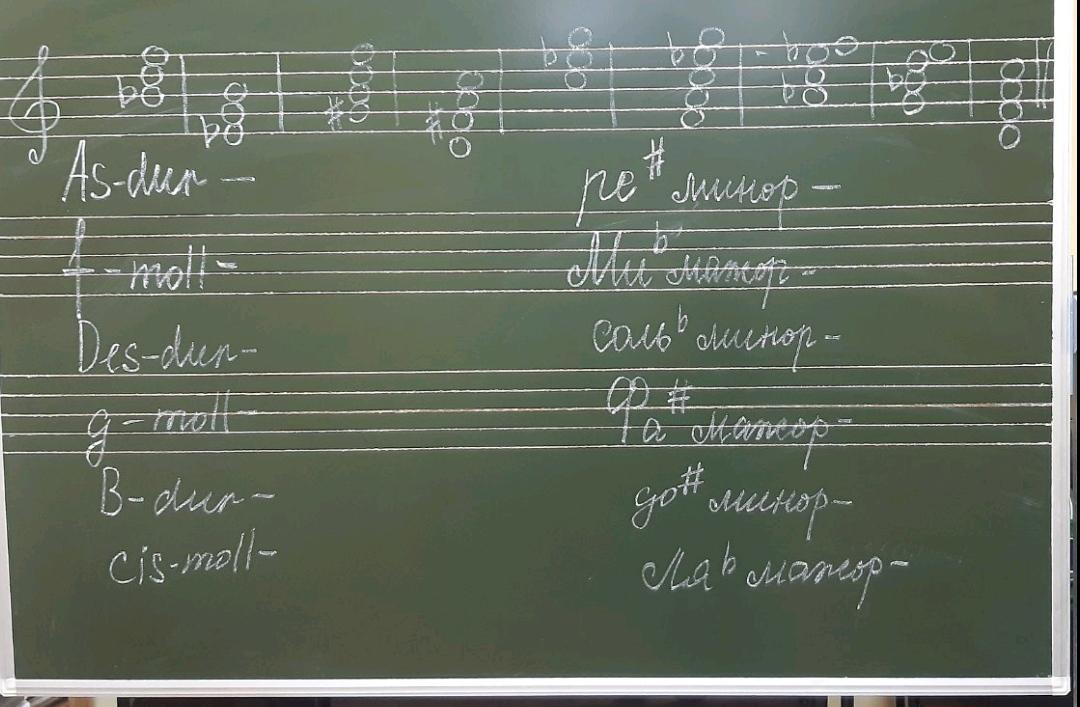 As-dur -
f-moll -
Des-dur -
g-moll -
B-dur -
cis-moll -
ре# минор -
Ми♭ мажор -
соль♭ минор -
Фа# мажор -
до# минор -
Ля♭ мажор -